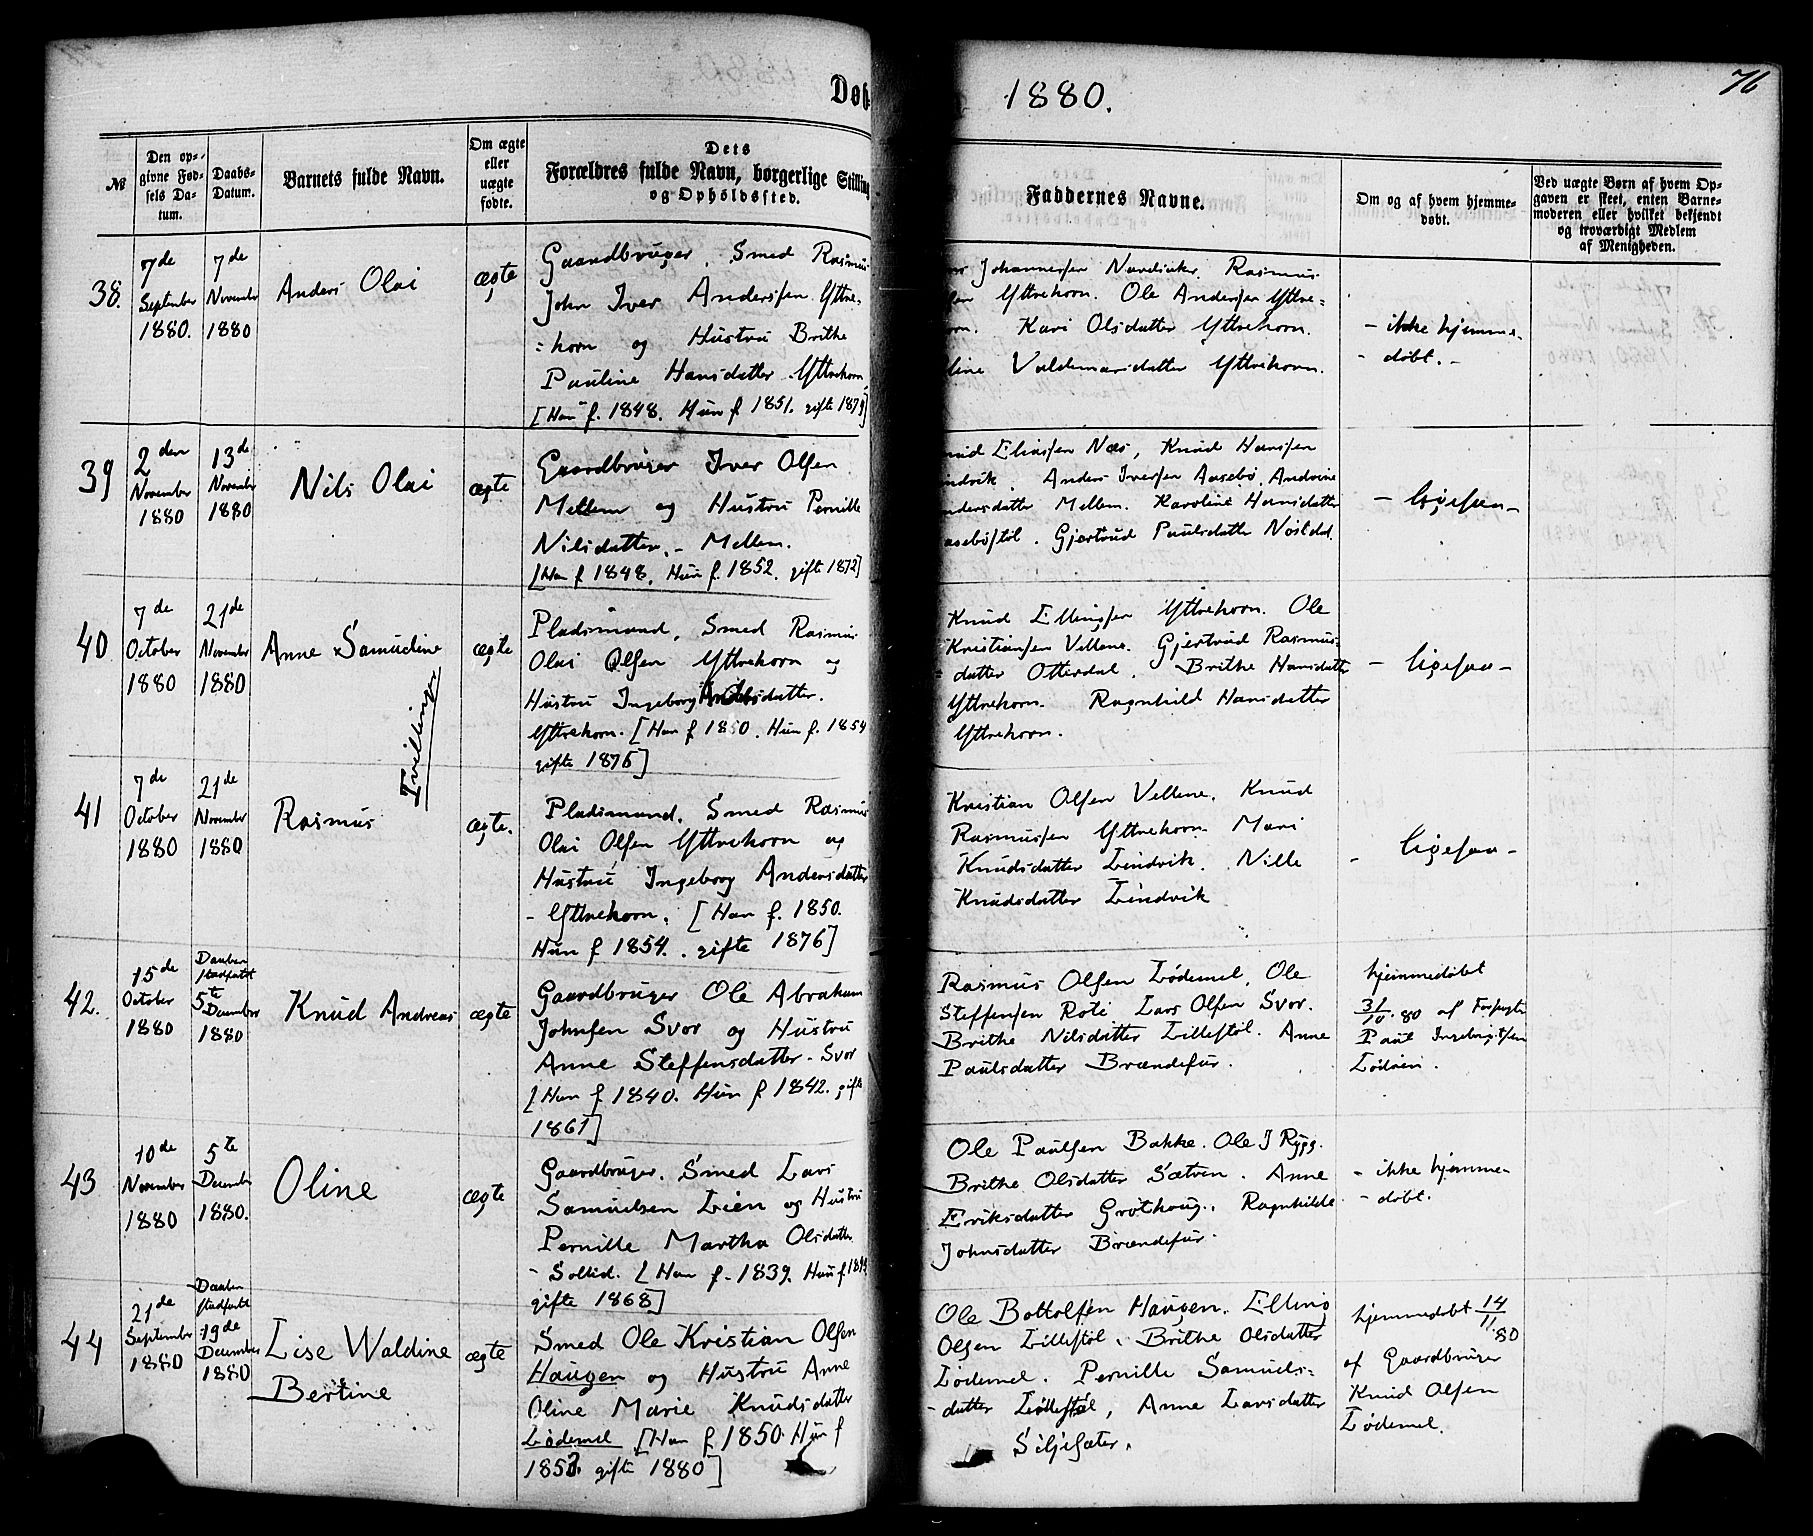 Døb
1880.
76
№
Den op-
givne Fød-
sels Da-
tum.
Daabs-
Datum.
Barnets fulde Navn.
Om ægte
eller
uægte
fødte.
Dets
Forældres fulde Navn, borgerlige Stilling
og Opholdssted.
Faddernes Navne.
Om og af hvem hjemme-
døbt.
Ved uægte Børn af hvem Op-
gaven er skeet, enten Barne-
moderen eller hvilket bekjendt
og troværdigt Medlem
af Menigheden.
38.
7de
September
1880.
7de
November
1880
Anders Olai
ægte
Gaardbruger, Smed Rasmus
John Iver Anderssen Yttre-
=horn og Hustru Brithe
Pauline Hansdatter Yttrehorn
[Han f. 1848. Hun f. 1851. gifte 1879]
Johannessen Nordsiker, Rasmus
Yttrehorn. Ole Anderssen Yttre=
Kari Olsdatter Yttrehorn.
Valdemarsdatter Yttrehorn.
- ikke hjemme-
- døbt. -
39
2den
November
1880
13de
November
1880
Nils Olai
ægte
Gaardbruger Iver Olsen
Mellem og Hustru Pernille
Nilsdatter. - Mellem.
[Han f 1848. Hun f. 1852. gifte 1872]
Eliassen Næs, Knud Hanssen
Anders Iverssen Aasebø, Andrine
Mellem. Karoline Hansdatter
Gjertrud Paulsdatter Nosldal.
- ligesaa -
40
7de
October
1880
21de
November
1880
Anne Samudine
Tvillinger
ægte
Pladsmand, Smed Rasmus
Olai Olsen Yttrehorn og
Hustru Ingeborg Andersdatter.
Yttrehorn. [Han f 1850. Hun f. 1854
gifte 1876]
Knud Ellingsen Yttrehorn. Ole
Kristiansen Vellene. Gjertrud Rasmus-
datter Otterdal. Brithe Hansdatter
Yttrehorn. Ragnhild Hansdatter
Yttrehorn.
- ligesaa -
41
7de
October
1880
21de
November
1880
Rasmus
ægte.
Pladsmand. Smed Rasmus
Olai Olsen Yttrehorn og
Hustru Ingeborg Andersdatter
- Yttrehorn. [Han f. 1850.
Hun f 1854. gifte 1876]
Kristian Olsen Vellene. Knud
Rasmussen Yttrehorn. Mari
Knudsdatter Lindvik. Nille
Knudsdatter Lindvik
- ligesaa -
42.
15de
October
1880
Daaben
stadfæstet
5te
December
1880
Knud Andreas
ægte
Gaardbruger Ole Abraham
Johnsen Svor og Hustru
Anne Steffensdatter - Svor
[Han f 1840. Hun f 1842. gifte
1861]
Rasmus Olsen Lødemel, Ole
Steffensen Roti. Lars Olsen Svor.
Brithe Nilsdatter Lillestøl. Anne
Paulsdatter Brændefur.
hjemmedøbt
31/10. 80 af
Paul
Lødøen.
43
10de
November
1880
5te
December
1880.
Oline
ægte
Gaardbruger. Smed Lars
Samuelsen Lien og Hustru
Pernille Martha Olsdatter
- Sollid. [Han f. 1839. Hun f
gifte 1868]
Ole Paulsen Bakke. Ole J Rygg.
Brithe Olsdatter Sætren. Anne
Eriksdatter Grothaug. Ragnhilde
Johnsdatter Brændefur.
- ikke hjemme-
- døbt.
44
21de
September
1880
Daaben
stadfæstet
19de
December
1880
Lise Waldine
Bertine
ægte
Smed Ole Kristian Olsen
Haugen og Hustru Anne
Oline Marie Knudsdatter
Lødemel [Han f 1850. Hun f
gifte 1880]
Ole Bottolfsen Haugen, Elling
Olsen Lillestøl, Brithe Olsdatter
Lødemel. Pernille Samuels=
-datter Lillestøl, Anne Larsdatter
Siljesæter.
hjemmedøbt 14/11 80
af Gaardbruger
Knud Olsen
Lødemel.